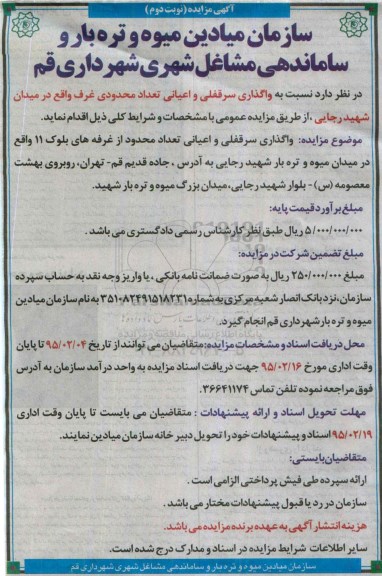 آگهی مزایده (نوبت دوم)
سازمان میادین میوه و تره بار و
ساماندهی مشاغل شهری شهرداری قم
در نظر دارد نسبت به واگذاری سرقفلی و اعیانی تعداد محدودی غرف واقع در میدان
شهید رجایی ، از طریق مزایده عمومی با مشخصات و شرایط کلی ذیل اقدام نماید.
موضوع مزایده: واگذاری سرقفلی و اعیانی تعداد محدود از غرفه های بلوک ۱۱ واقع
در میدان میوه و تره بار شهید رجایی به آدرس ، جاده قدیم قم- تهران، روبروی بهشت
معصومه (س) - بلوار شهید رجایی، میدان بزرگ میوه و تره بار شهید.
مبلغ برآورد قیمت پایه:
۵/۰۰۰/۰۰۰/۰۰۰ ریال طبق نظر کارشناس رسمی دادگستری می باشد .
مبلغ تضمین شرکت در مزایده:
مبلغ ۲۵۰/۰۰۰/۰۰۰ ریال به صورت ضمانت نامه بانکی ، یا واریز وجه نقد به حساب سپرده
سازمان، نزد بانک انصار شعبه مرکزی به شماره ۳۵۱۰۸۲۴۹۱۵۱۸۲۳۱ به نام سازمان میادین
میوه و تره بار شهرداری قم انجام گیرد.
محل دریافت اسناد و مشخصات مزایده: متقاضیان می توانند از تاریخ ۹۵/۰۲/۰۴ تا پایان
وقت اداری مورخ ۹۵/۰۲/۱۶ جهت دریافت اسناد مزایده به واحد درآمد سازمان به آدرس
فوق مراجعه نموده تلفن تماس ۳۶۶۴۱۱۷۴.
مهلت تحویل اسناد و ارائه پیشنهادات : متقاضیان می بایست تا پایان وقت اداری
۹۵/۰۲/۱۹ اسناد و پیشنهادات خود را تحویل دبیر خانه سازمان میادین نمایند.
متقاضیان بایستی:
ارائه سپرده طی فیش پرداختی الزامی است .
سازمان در رد یا قبول پیشنهادات مختار می باشد .
هزینه انتشار آگهی به عهده برنده مزایده می باشد.
سایر اطلاعات شرایط مزایده در اسناد و مدارک درج شده است.
سازمان میادین میوه و تره بار و ساماندهی مشاغل شهری شهرداری قم